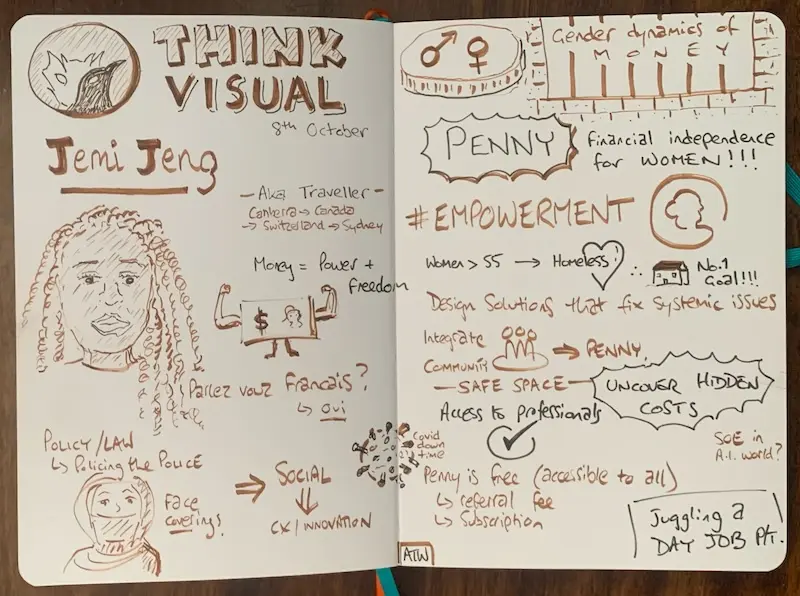 THINK
VISUAL
8th October
Jemi Jeng
- Aka Traveller -
Canberra → Canada
→ Switzerland → Sydney
Money = Power +
Freedom
$
Parlez vouz Francais?
↳ oui
POLICY/LAW
↳ Policing the POLICE
Face
coverings!
⇒ SOCIAL
⇓
CX/INNOVATION
Gender dynamics of
MONEY
PENNY
Financial independence
for WOMEN!!!
#EMPOWERMENT
Women > 55 → Homeless!
∴ No.1
Goal!!!
Design Solutions that fix systemic issues
Integrate
Community
⇒ PENNY
- SAFE SPACE -
UNCOVER HIDDEN
COSTS
Access to professionals
Covid
down
time
SOE in
A.I. world?
Penny is free (accessible to all)
↳ referral fee
↳ Subscription
Juggling a
DAY JOB P/T.
ATW